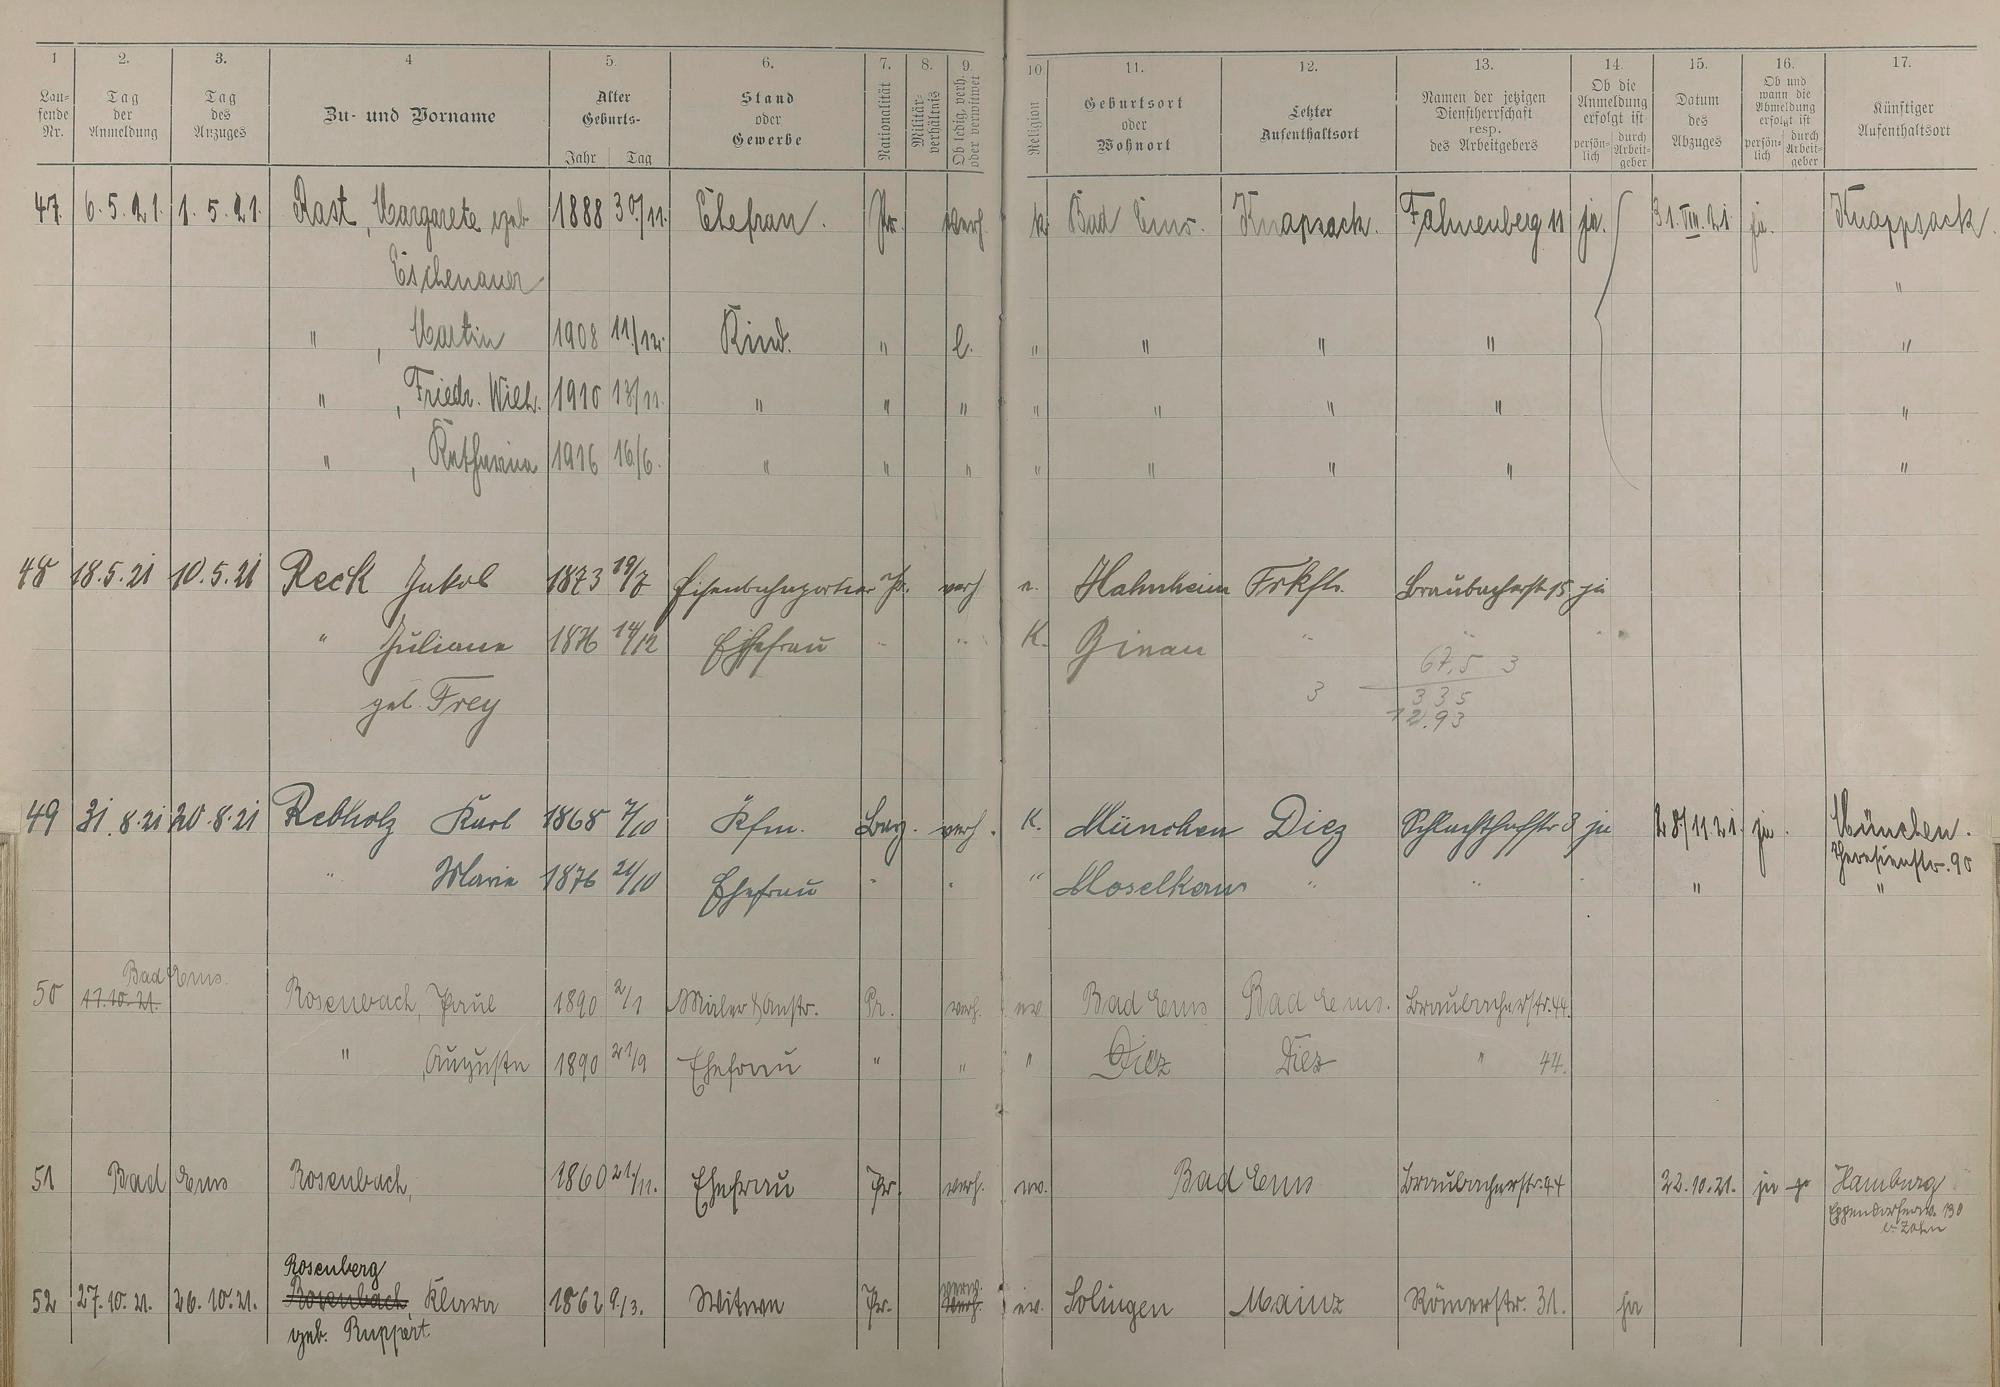 1 2. 3. 4 5. 6. 7. 8. 9. 10 11. 12. 13. 14. 15. 16. 17.
Lau-fende Nr. Tag der Anmeldung Tag des Anzuges Zu- und Vorname Alter Geburts- Jahr Tag Stand oder Gewerbe Nationalität Militär-verhältnis Ob ledig, verh. oder verwitwet Religion Geburtsort oder Wohnort Letzter Aufenthaltsort Namen der jetzigen Dienstherrschaft resp. des Arbeitgebers Ob die Anmeldung erfolgt ist persön-lich durch Arbeit-geber Datum des Abzuges Ob und wann die Abmeldung erfolgt ist persön-lich durch Arbeit-geber Künftiger Aufenthaltsort
47. 6.5.21. 1.5.21. Rast, Margarete geb. 1888 30/11. Ehefrau. Pr. verh. k. Bad Ems. Knapsack. Fahnenberg 11 ja. 31.VIII.21 ja. Knappsack.
Eschenauer "
" , Martin 1908 11/12. Kind. " l. " " " " "
" , Friedr. Wilh. 1910 13/11. " " " " " " " "
" , Katharina 1916 16/6. " " " " " " " "
48 18.5.21 10.5.21 Reck Jakob 1873 19/7 Eisenbahnportier Pr. verh e. Hahnheim Frkft. Braubacherstr 15 ja
" Juliane 1876 14/12 Ehefrau " " K. " " "
geb. Frey
67,5 3
3 335
12.93
49 31.8.21 20.8.21 Rebholz Karl 1868 7/10 Kfm. Bay. verh. K. München Diez Schlachthofstr 3 ja 28/11.21. ja. München.
Theresienstr. 90
" Marie 1876 21/10 Ehefrau " " " " " " " "
Bad Ems.
50 17.10.21. Rosenbach, Paul 1890 2/1 Maler & Anstr. Pr. verh. ev. Bad Ems Bad Ems. Braubacherstr. 44.
" , Auguste 1890 21/9 Ehefrau " " " Diez Diez " 44.
51 Bad Ems Rosenbach, 1860 21/11. Ehefrau Pr. verh. ev. Bad Ems Braubacherstr. 44 22.10.21. ja Hamburg
Eppendorferw. 130
b. Zahn
Rosenberg verw.
52 27.10.21. 26.10.21. Rosenbach, Klara 1862 9./3. Witwe Pr. verh. ev. Solingen Mainz Römerstr. 31. ja
geb. Ruppert.